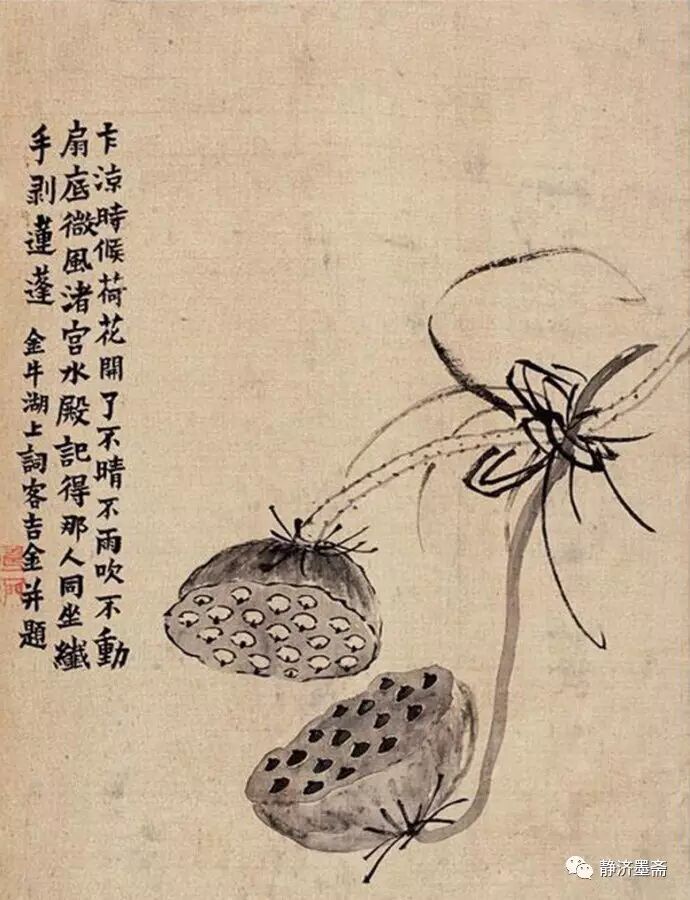 乍涼時候荷花開了不晴不雨吹不動
扇底微風渚宮水殿記得那人同坐纖
手剥蓮蓬 金牛湖上詞客吉金并題
静济墨斋